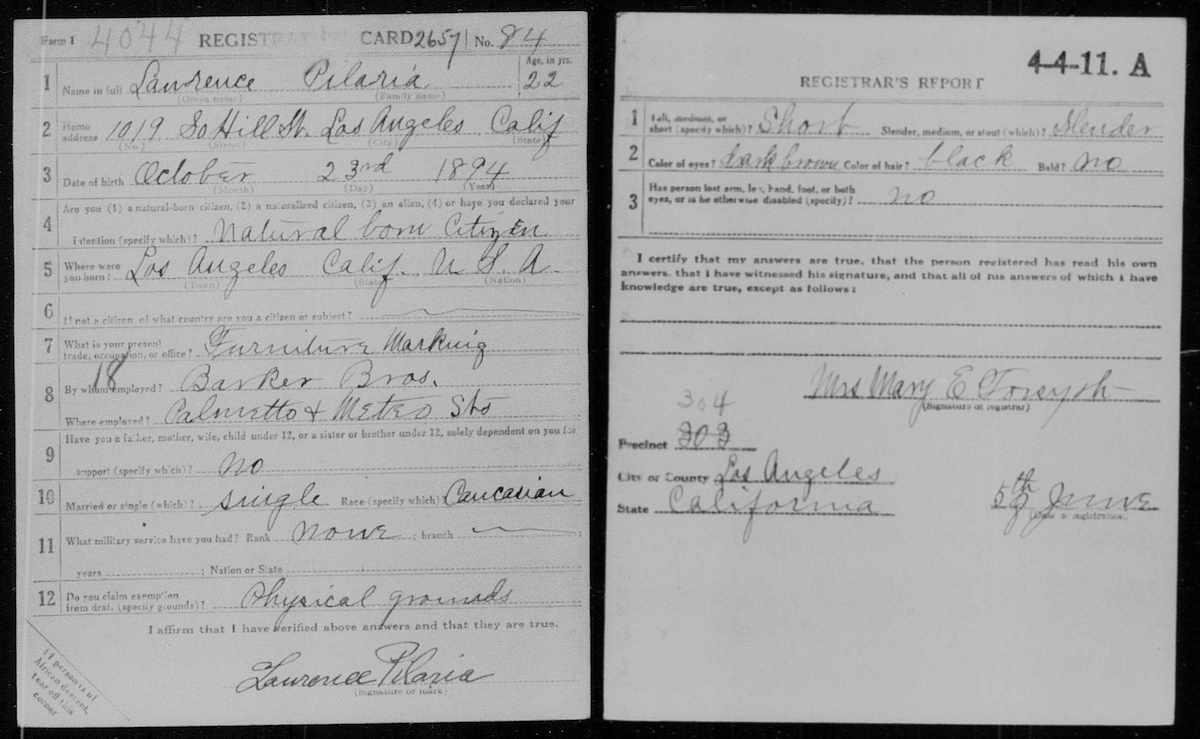 Form 1 4044 REGISTRATION CARD 2657 No. 84
1 Name in full Lawrence Pilaria Age, in yrs. 22
(Given name) (Family name)
2 Home address 1019 So Hill St. Los Angeles Calif
(No.) (Street) (City) (State)
3 Date of birth October 23rd 1894
(Month) (Day) (Year)
4 Are you (1) a natural-born citizen, (2) a naturalized citizen, (3) an alien, (4) or have you declared your
intention (specify which)? Natural born Citizen
5 Where were you born? Los Angeles Calif. U S. A
(Town) (State) (Nation)
6 If not a citizen, of what country are you a citizen or subject?
7 What is your present trade, occupation, or office? Furniture Marking
18
8 By whom employed? Barker Bros.
Where employed? Palmetto & Meteo Sts
9 Have you a father, mother, wife, child under 12, or a sister or brother under 12, solely dependent on you for
support (specify which)? No
10 Married or single (which)? single Race (specify which) Caucasian
11 What military service have you had? Rank None ; branch ;
years ; Nation or State
12 Do you claim exemption from draft (specify grounds)? Physical grounds
I affirm that I have verified above answers and that they are true.
Lawrence Pilaria
(Signature or mark)
If person is of
African descent,
tear off this
corner
4-4-11. A
REGISTRAR'S REPORT
1 Tall, medium, or short (specify which)? Short Slender, medium, or stout (which)? Slender
2 Color of eyes? dark brown Color of hair? black Bald? no
3 Has person lost arm, leg, hand, foot, or both
eyes, or is he otherwise disabled (specify)? no
I certify that my answers are true, that the person registered has read his own
answers, that I have witnessed his signature, and that all of his answers of which I have
knowledge are true, except as follows:
Mrs Mary E Forsyth
(Signature of registrar)
304
Precinct 303
City or County Los Angeles
State California 5th June
(Date of registration)